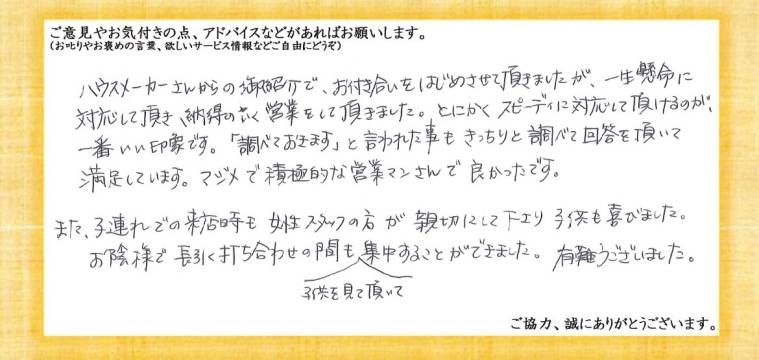 ご意見やお気付きの点、アドバイスなどがあればお願いします。
(お叱りやお褒めの言葉、欲しいサービス情報などご自由にどうぞ)
ハウスメーカーさんからの御紹介で、お付き合いをはじめさせて頂きましたが、一生懸命に
対応して頂き、納得のいく営業をして頂きました。とにかくスピーディに対応して頂けるのが、
一番いい印象です。「調べておきます」と言われた事もきっちりと調べて回答を頂いて
満足しています。マジメで積極的な営業マンさんで良かったです。
また、子連れでの来店時も女性スタッフの方が親切にして下さり子供も喜びました。
お陰様で長引く打ち合わせの間も集中することができました。有難うございました。
子供を見て頂いて
ご協力、誠にありがとうございます。